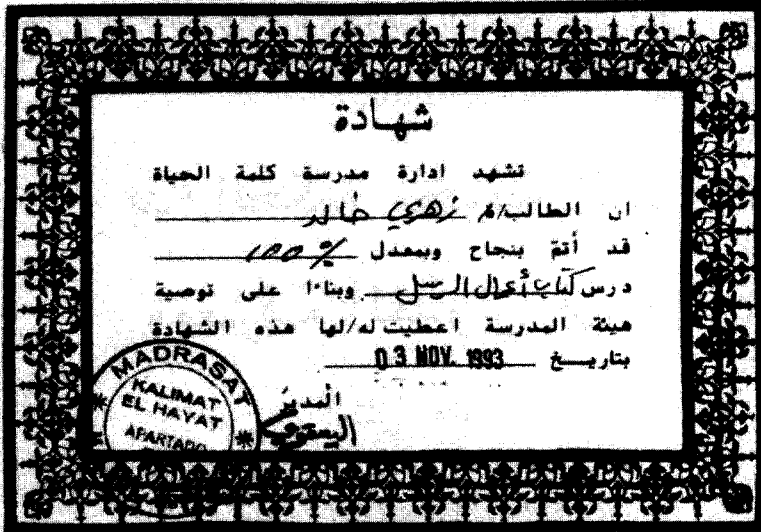 شهادة
تشهد ادارة مدرسة كلمة الحياة
ان الطالب/ة زهري خالد
قد أتمّ بنجاح وبمعدل 100%
درس كتاب أعمال الرسل وبناءا على توصية
هيئة المدرسة اعطيت له/لها هذه الشهادة
بتاريخ 03 NOV. 1993
المدير
MADRASAT
KALIMAT
EL HAYAT
APARTADO